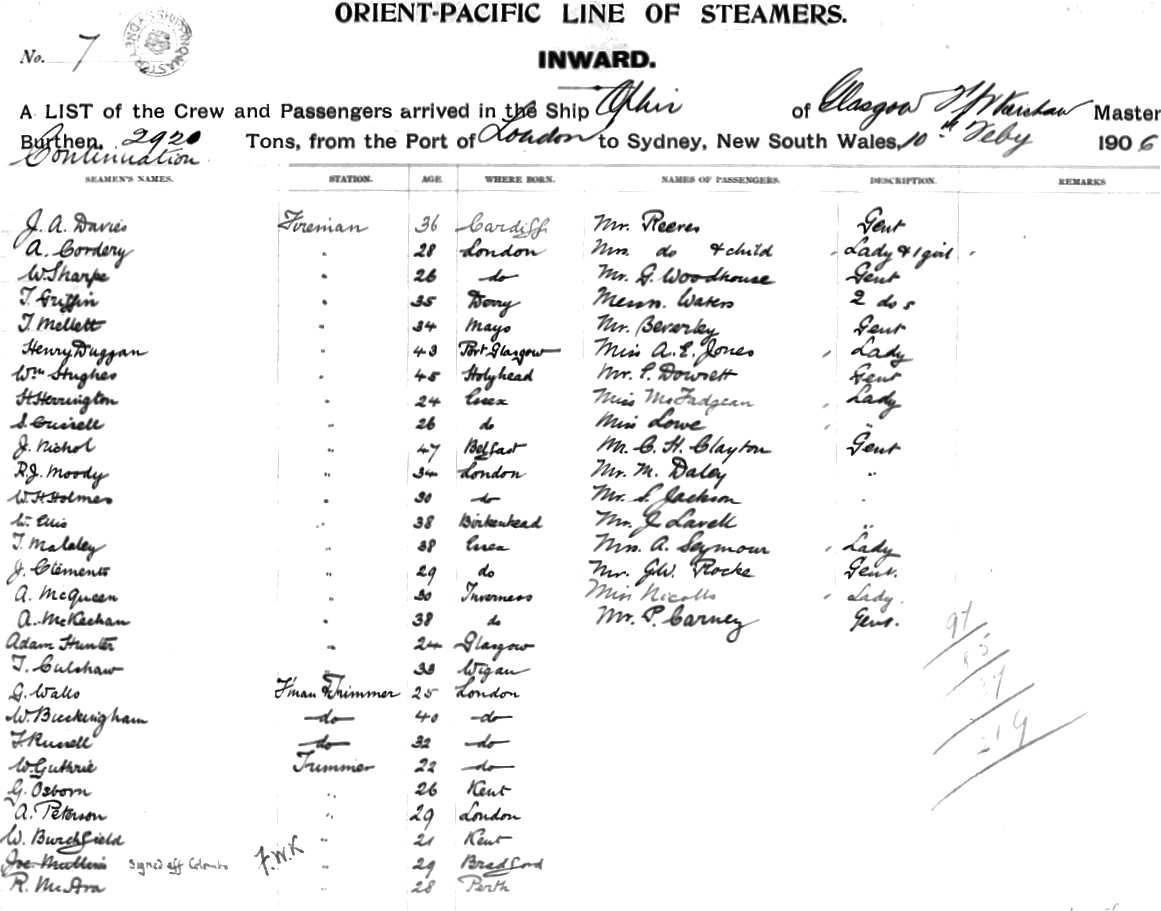 ORIENT-PACIFIC LINE OF STEAMERS.
No. 7
INWARD.
A LIST of the Crew and Passengers arrived in the Ship Ophir of Glasgow Master
Burthen, 2920 Tons, from the Port of London to Sydney, New South Wales, 10th Feby 1906
Continuation
SEAMEN'S NAMES. STATION. AGE WHERE BORN. NAMES OF PASSENGERS. DESCRIPTION. REMARKS
J. A. Davies Fireman 36 Cardiff Mr. Reeves Gent
A. Cordery " 28 London Mrs. do & child Lady & 1 girl
W. Sharpe " 26 do Mr. G. Woodhouse Gent
T. Griffin " 35 Derry Messrs. Waters 2 dos
T. Mellett " 34 Mayo Mr. Beverley Gent
Henry Duggan " 43 Port Glasgow Miss A. E. Jones Lady
Wm Hughes " 45 Holyhead Mr. P. Dowsett Gent
H. Herrington " 24 Essex Miss McFadgean Lady
S. " 26 do Miss Lowe "
J. Nichol " 47 Belfast Mr. C. H. Clayton Gent
R. J. Moody " 34 London Mr. M. Daley "
W. H. Holmes " 30 do Mr. S. Jackson "
W. Ellis " 38 Birkenhead Mr. J. Lavell "
T. Malaley " 38 Essex Mrs. A. Seymour Lady
J. Clements " 29 do Mr. G. W. Rocke Gent.
A. McQueen " 30 Inverness Miss Nicolls Lady.
A. McKechan " 38 do Mr. P. Carney Gent.
Adam Hunter " 24 Glasgow
T. Culshaw " 33 Wigan
G. Walls F'man & Trimmer 25 London
W. Buckingham do 40 do
T. Russell do 32 do
W. Guthrie Trimmer 22 do
G. Osborn " 26 Kent
A. Peterson " 29 London
W. Burchfield " 21 Kent
Joe Mullins Signed off Colombo F.W.K " 29 Bradford
R. McAra " 28 Perth